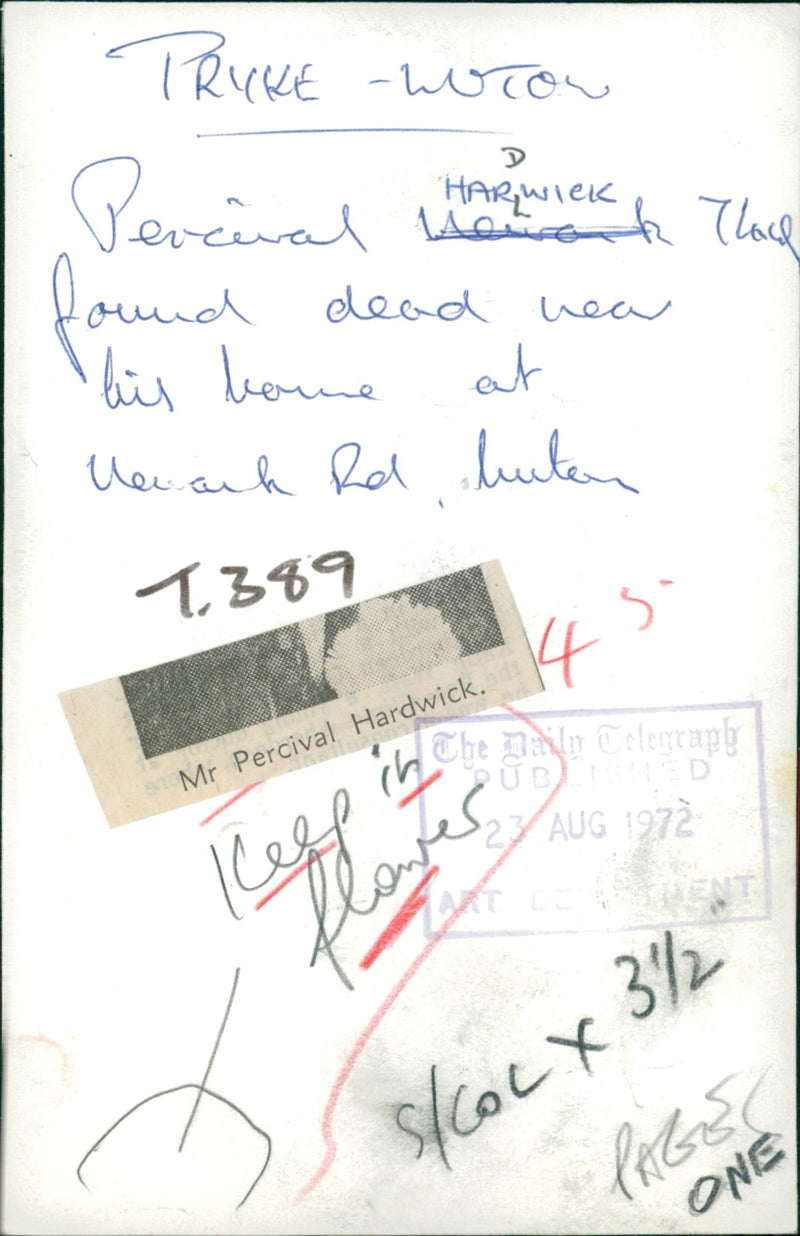 PRYKE - LUTON
D
HARWICK
Percival Newark
found dead near
his home at
Newark Rd, Luton
T.389
45
Mr Percival Hardwick.
Keep in
flower
The Daily Telegraph
PUBLISHED
23 AUG 1972
ART DEPARTMENT
S/COL X 3 1/2"
PAGE
ONE